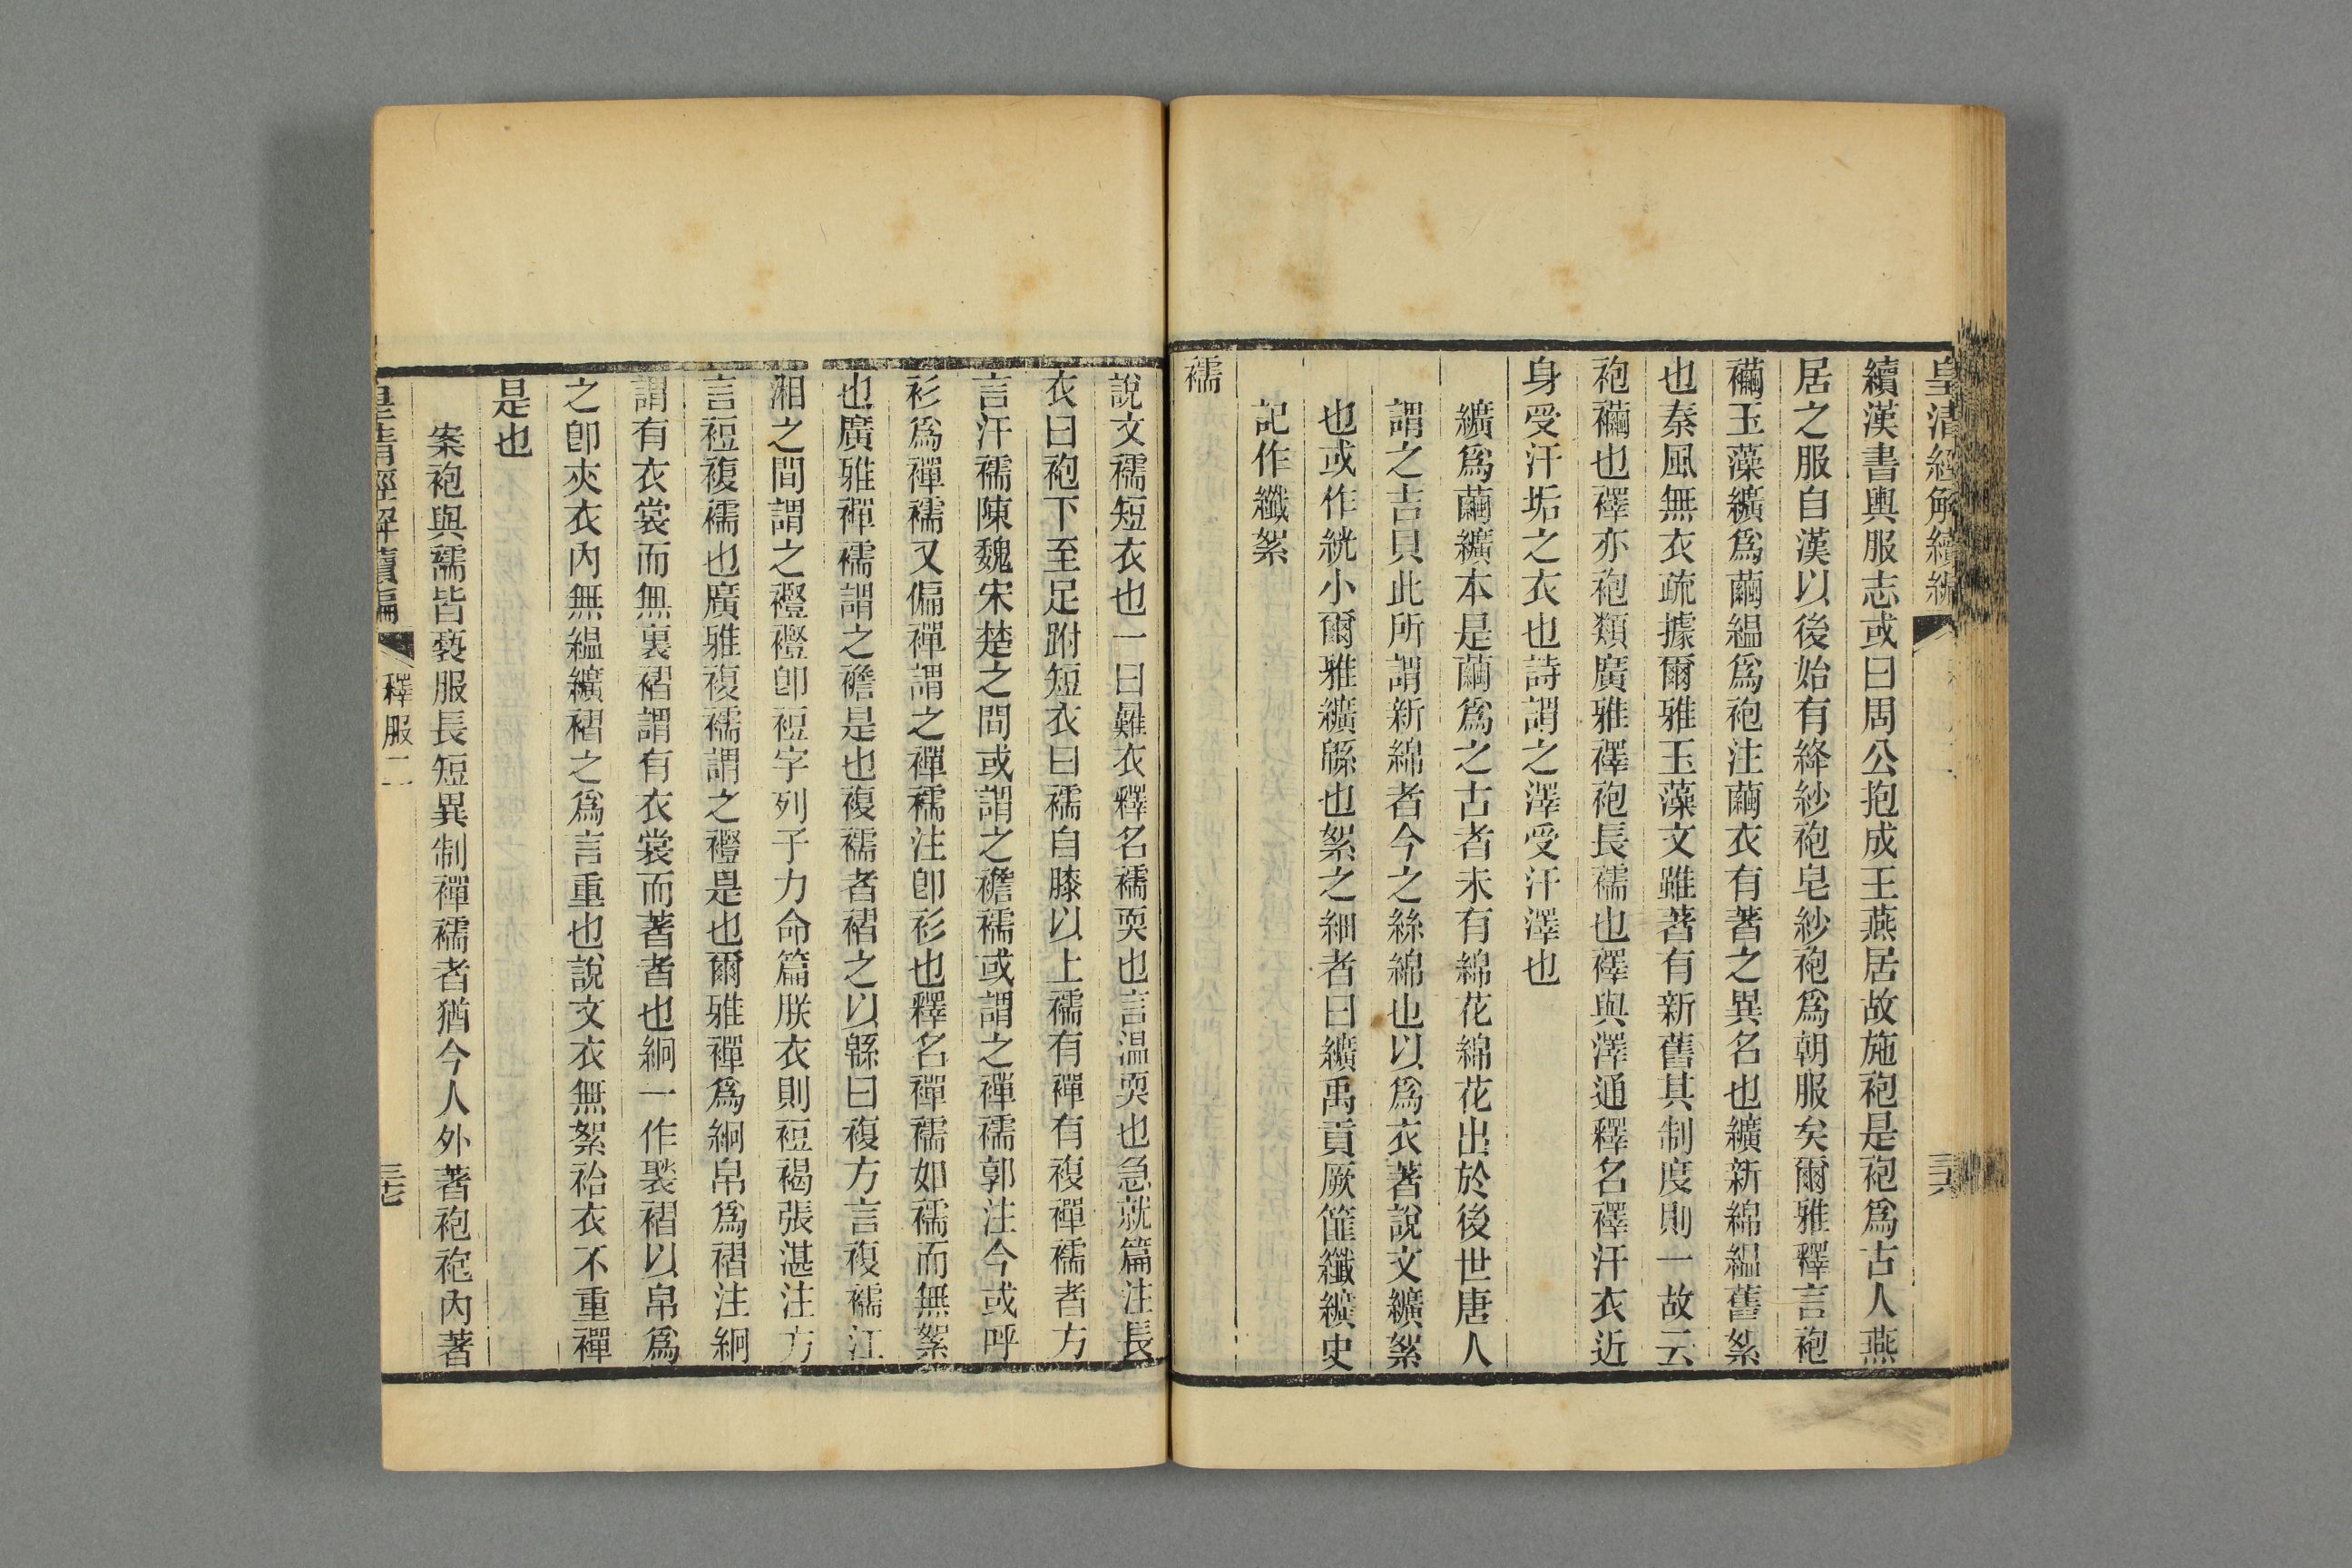 皇清經解續編
三六
續漢書輿服志或曰周公抱成王燕居故施袍是袍爲古人燕
居之服自漢以後始有絳紗袍皂紗袍爲朝服矣爾雅釋言袍
襺玉藻纊爲襺縕爲袍注襺衣有著之異名也纊新綿縕舊絮
也秦風無衣疏據爾雅玉藻文雖著有新舊其制度則一故云
袍襺也襗亦袍類廣雅襗袍長襦也襗與澤通釋名襗汗衣近
身受汗垢之衣也詩謂之澤受汗澤也
纊爲襺纊本是繭爲之古者未有綿花綿花出於後世唐人
謂之吉貝此所謂新綿者今之絲綿也以爲衣著說文纊絮
也或作絖小爾雅纊緜也絮之細者曰纊禹貢厥篚纖纊史
記作纖絮
襦
說文襦短衣也一曰㬮衣釋名襦耎也言温耎也急就篇注長
衣曰袍下至足跗短衣曰襦自膝以上襦有襌有複襌襦者方
言汗襦陳魏宋楚之間或謂之襜襦或謂之襌襦郭注今或呼
衫爲襌襦又偏襌謂之襌襦注卽衫也釋名襌襦如襦而無絮
也廣雅襌襦謂之襜是也複襦者褶之以緜曰複方言複襦江
湘之間謂之䙞䙞卽裋字列子力命篇朕衣則裋褐張湛注方
言裋複襦也廣雅複襦謂之䙞是也爾雅襌爲絅帛爲褶注絅
謂有衣裳而無裏褶謂有衣裳而著者也絅一作褧褶以帛爲
之卽夾衣內無縕纊褶之爲言重也說文衣無絮袷衣不重襌
是也
案袍與襦皆褻服長短異制襌襦者猶今人外著袍袍內著
皇清經解續編
釋服二
三七